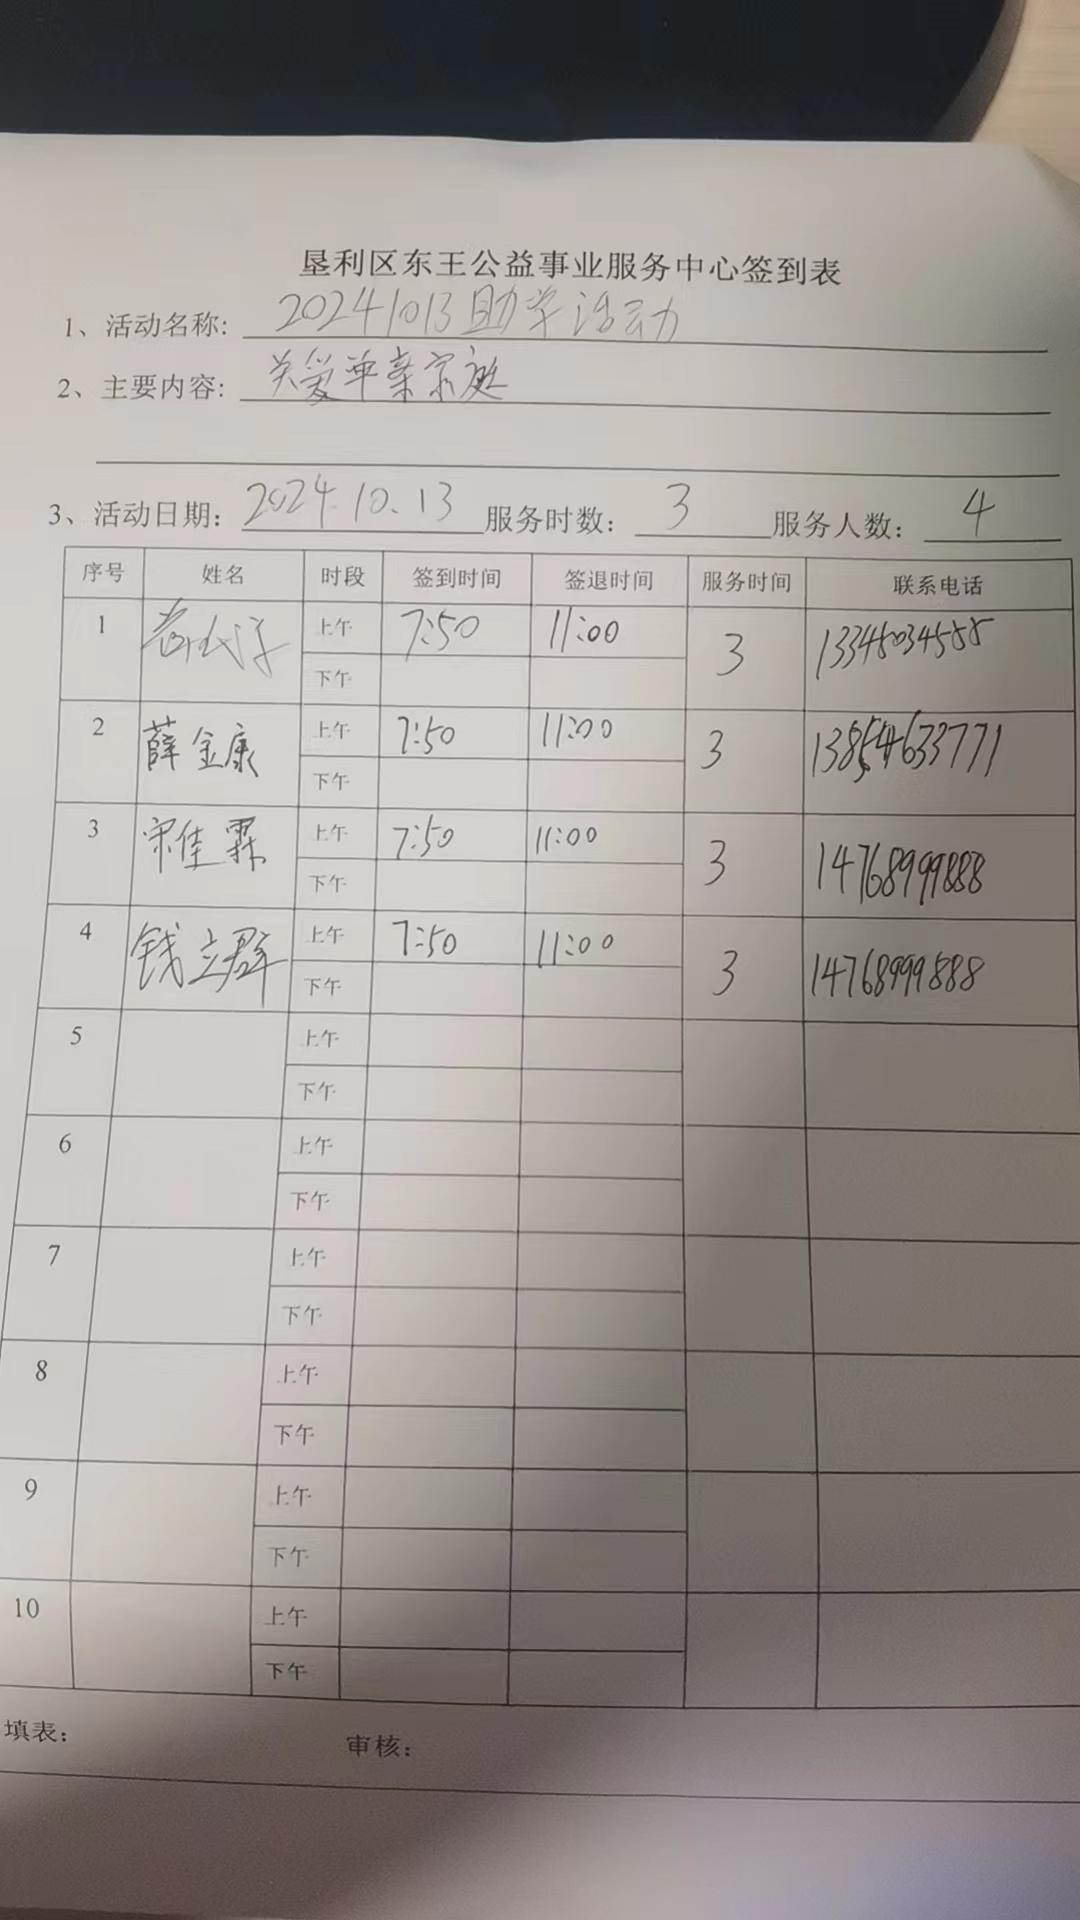 垦利区东王公益事业服务中心签到表
1、活动名称: 20241013助学活动
2、主要内容: 关爱单亲家庭
3、活动日期: 2024.10.13 服务时数: 3 服务人数: 4
序号 姓名 时段 签到时间 签退时间 服务时间 联系电话
1 上午 7:50 11:00 3
下午
2 薛金康 上午 7:50 11:00 3 13854633771
下午
3 宋佳霖 上午 7:50 11:00 3 14768999888
下午
4 钱立群 上午 7:50 11:00 3 14768999888
下午
5 上午
下午
6 上午
下午
7 上午
下午
8 上午
下午
9 上午
下午
10 上午
下午
填表: 审核: